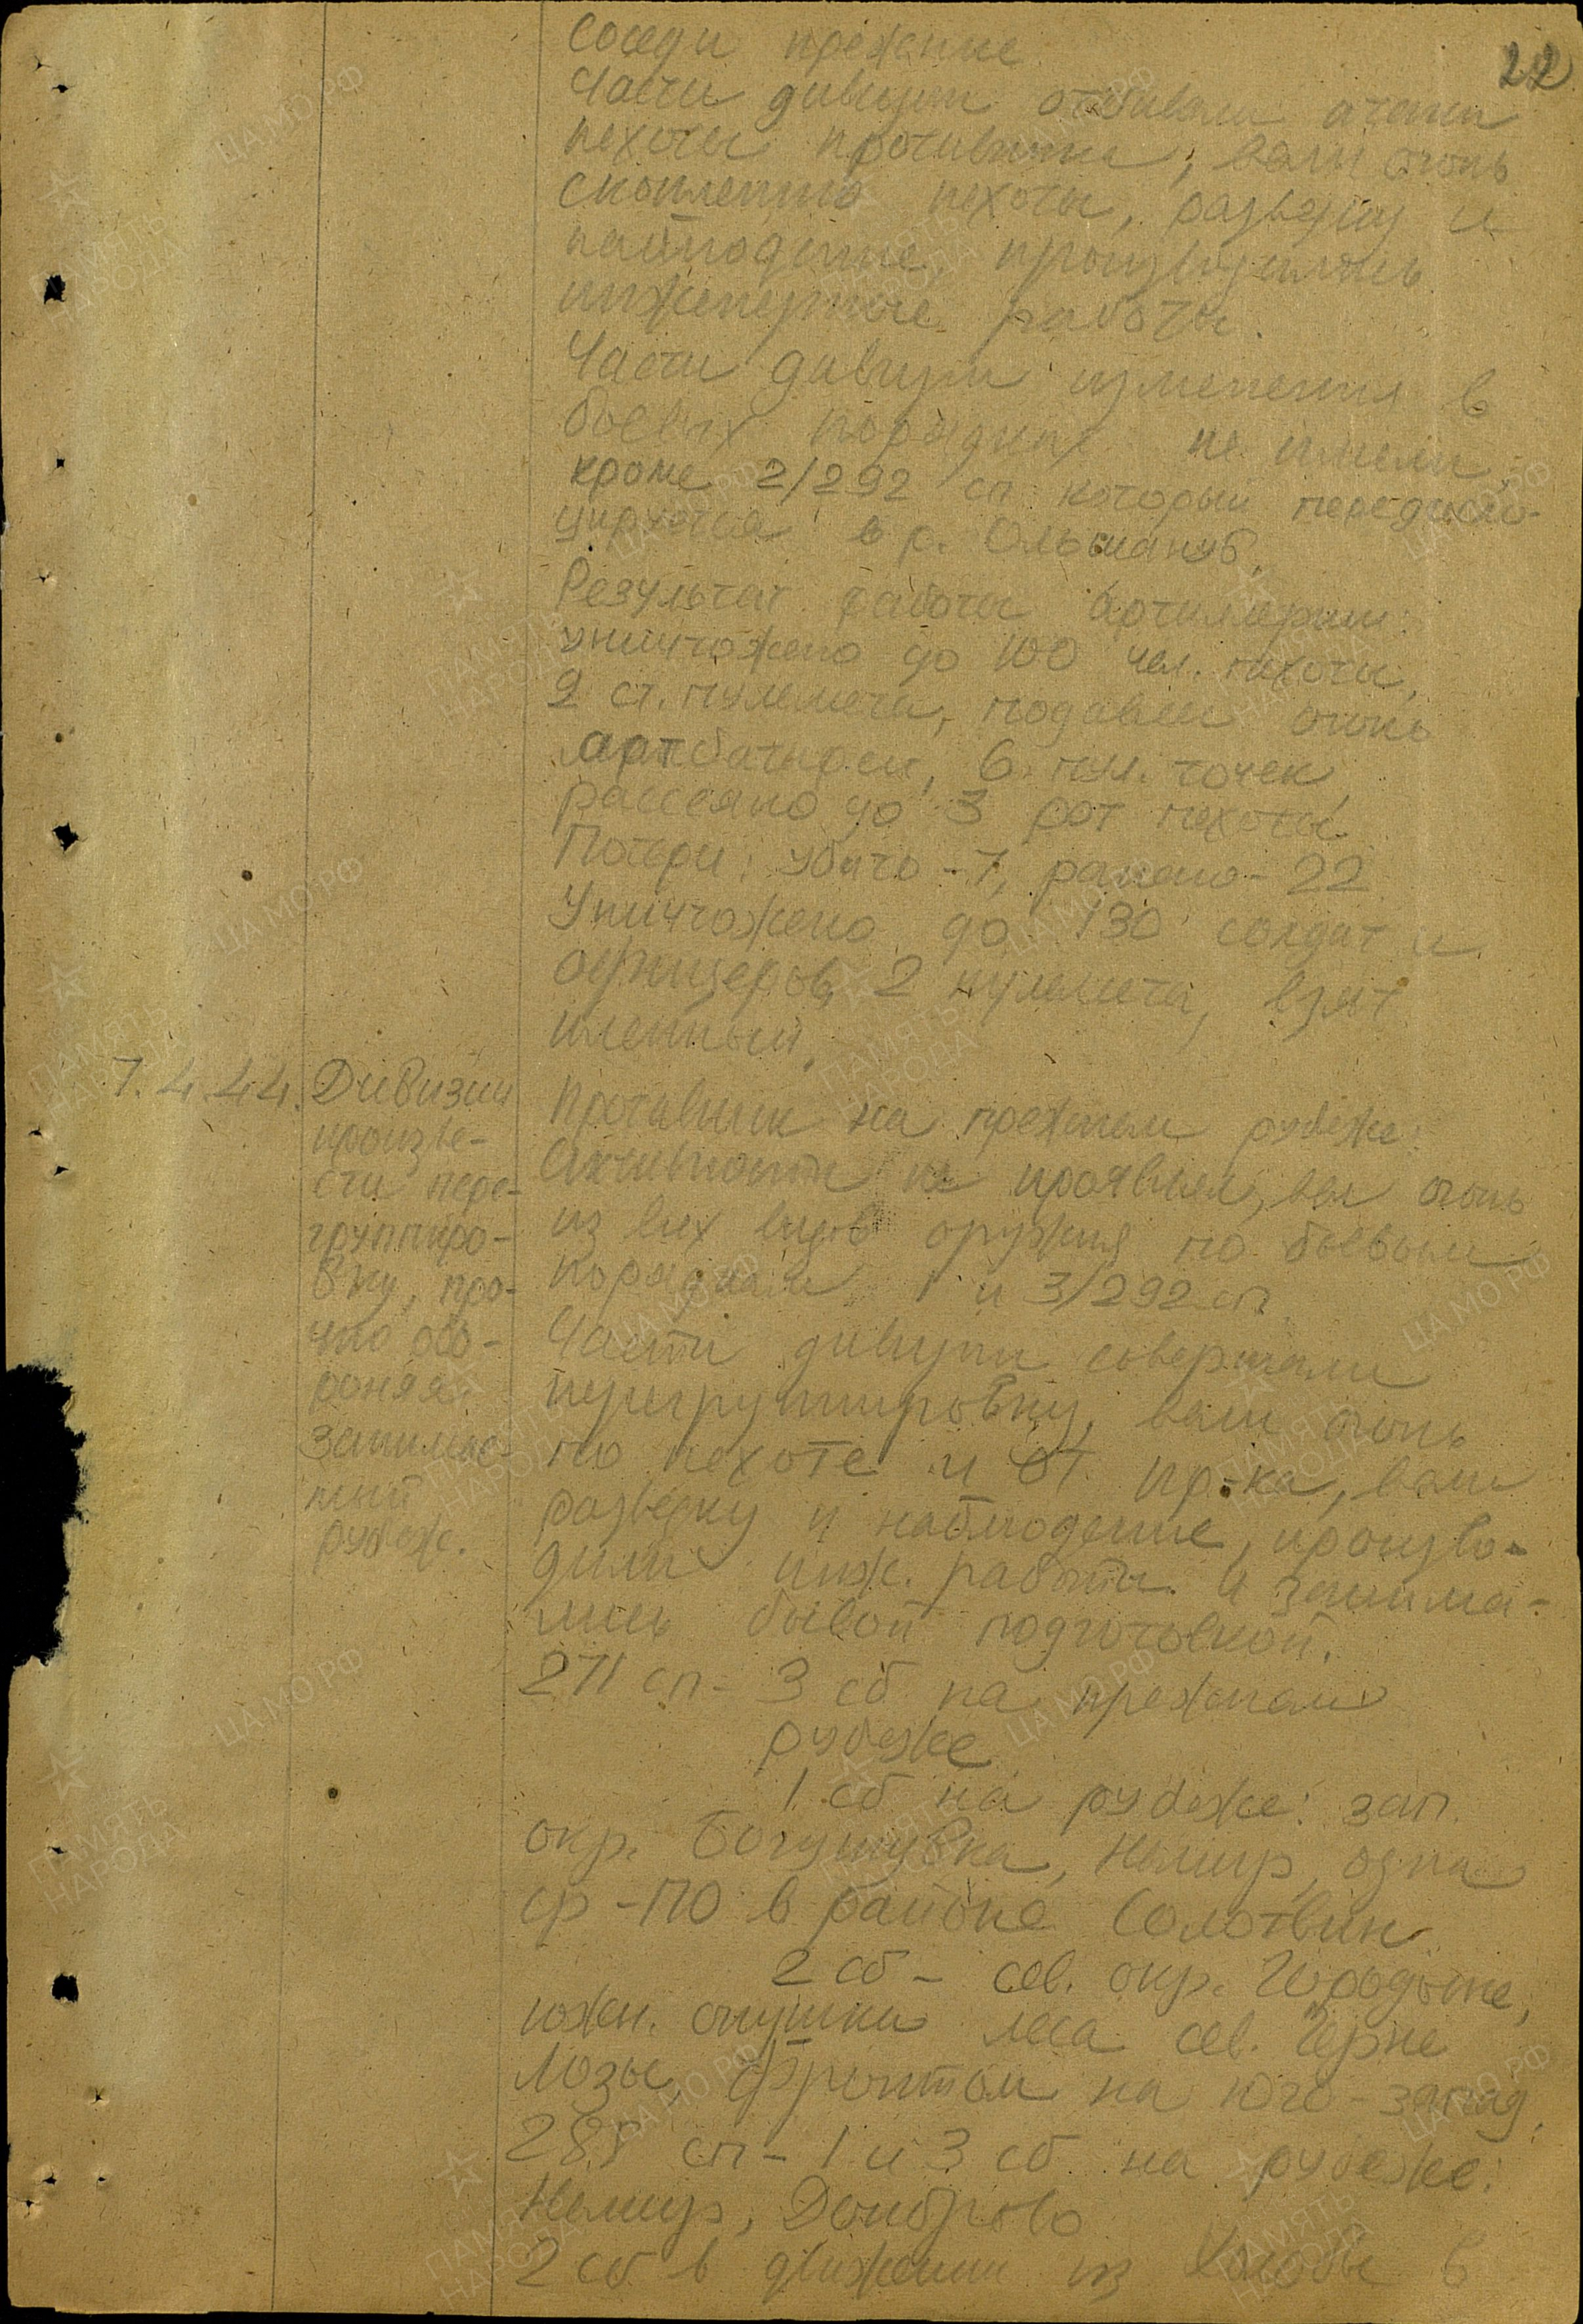 22
Соседи прежние.
Части дивизии отбивали атаки
пехоты противника, вели огонь
скоплению пехоты, разведку и
наблюдение, производились
инженерные работы.
Части дивизии изменения в
боевых порядках не имели,
кроме 2/292 сп который передисло-
цируется в р. Ольшануб.
Результат работы артиллерии:
уничтожено до 100 чел. пехоты,
2 ст. пулемета, подавлен огонь
артбатареи, 6 пул. точек,
рассеяно до 3 рот пехоты
Потери: убито - 7, ранено - 22
Уничтожено до 130 солдат и
офицеров, 2 пулемета, взят
пленный.
7.4.44.
Дивизии
произве-
сти пере-
группиро-
вку, про-
чно обо-
роняя
занимае-
мый
рубеж.
Противник на прежнем рубеже:
Активности не проявлял, вел огонь
из всех видов оружия по боевым
порядкам 1 и 3/292 сп
Части дивизии совершали
перегруппировку, вели огонь
по пехоте и ОТ пр-ка, вели
разведку и наблюдение, произво-
дили инж. работы и занима-
лись боевой подготовкой.
271 сп - 3 сб на прежнем
рубеже
1 сб на рубеже: зап.
окр. Богушувка, Немир, одна
ср - ПО в районе Солотвин
2 сб - сев. окр. Городыще,
южн. опушки леса сев. Черне
Лозы, фронтом на юго-запад,
285 сп - 1 и 3 сб на рубеже:
Немир, Домброво
2 сб в движении из в